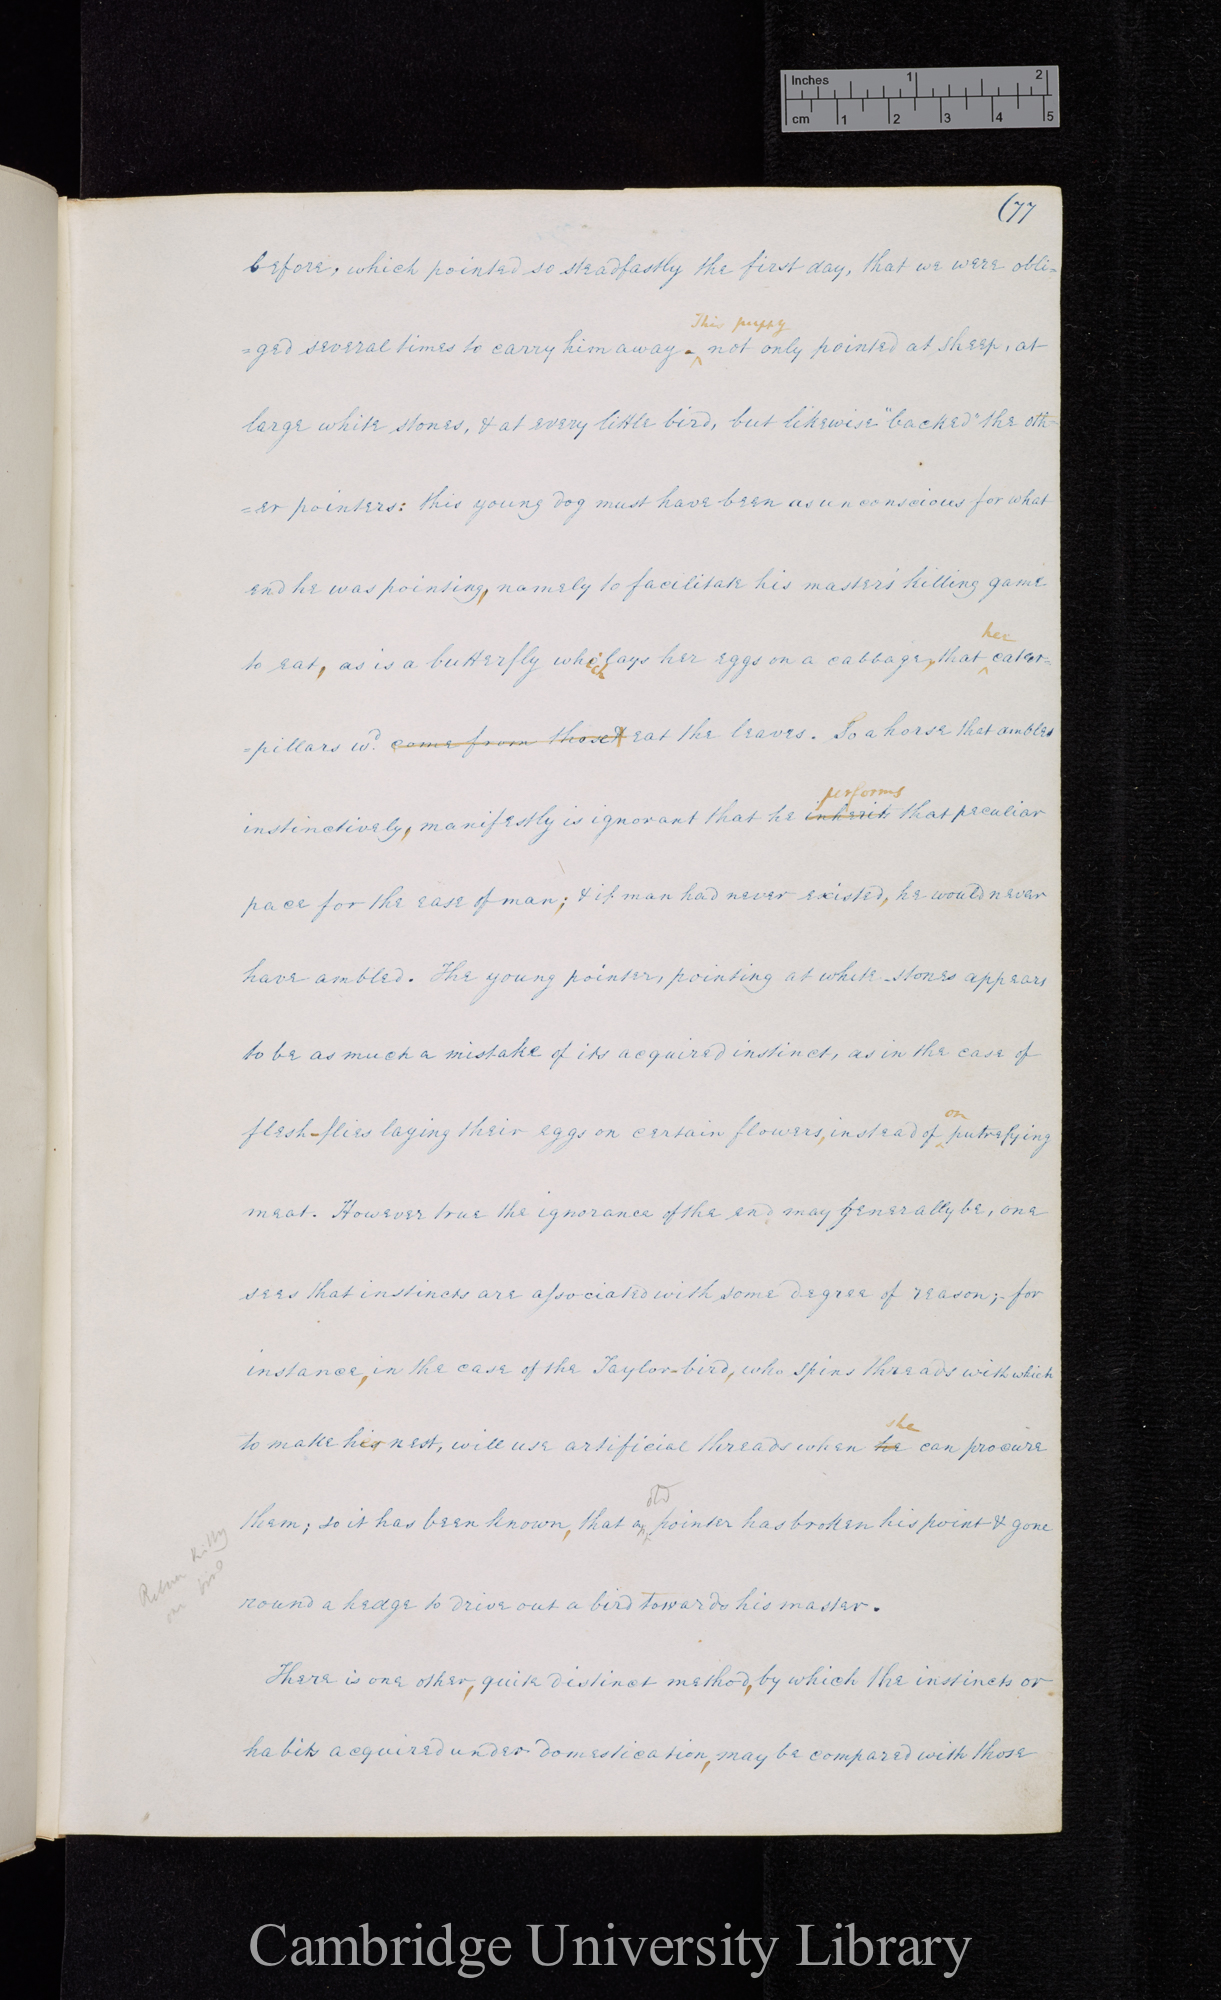 Inches 1 2
cm 1 2 3 4 5
(77
before, which pointed so steadfastly the first day, that we were obli=
This puppy
=ged several times to carry him away. ^ not only pointed at sheep, at
large white stones, & at every little bird, but likewise "backed" the oth-
=er pointers: this young dog must have been as unconscious for what
end he was pointing, namely to facilitate his master's killing game
her
to eat, as is a butterfly which lays her eggs on a cabbage, that ^ cater=
=pillars wd. come from those eat the leaves. So a horse that ambles
performs
instinctively, manifestly is ignorant that he inherits that peculiar
pace for the ease of man; & if man had never existed, he would never
have ambled. The young pointer, pointing at white stones appears
to be as much a mistake of its acquired instinct, as in the case of
on
flesh-flies laying their eggs on certain flowers, instead of ^ putrefying
meat. However true the ignorance of the end may generally be, one
sees that instincts are associated with some degree of reason; - for
instance, in the case of the Taylor-bird, who spins threads with which
she
to make his nest, will use artificial threads when he can procure
old
them; so it has been known, that a ^ pointer has broken his point & gone
round a hedge to drive out a bird towards his master.
There is one other, quite distinct method, by which the instincts or
habits acquired under domestication, may be compared with those
Cambridge University Library